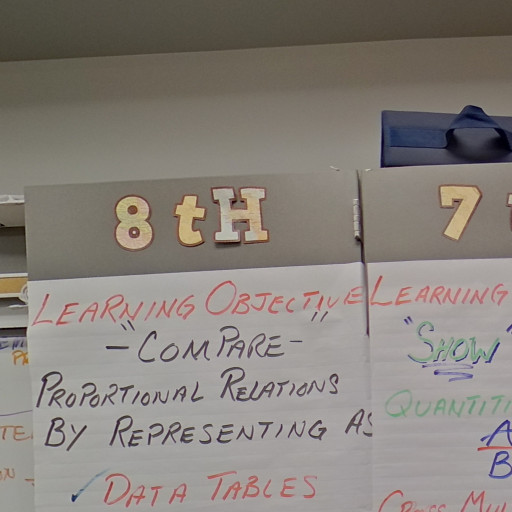 8tH
LEARNING OBJECTIVE
"COMPARE"
PROPORTIONAL RELATIONS
BY REPRESENTING AS
✓ DATA TABLES
7
LEARNING
"SHOW"
QUANTITI
A
B
CROSS MUL